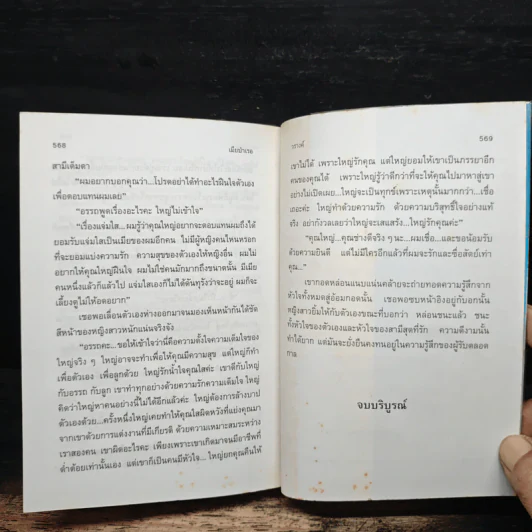 568
เมียบำเรอ
สามีเต็มตา
“ผมอยากบอกคุณว่า...โปรดอย่าได้ทำอะไรฝืนใจตัวเอง
เพื่อตอบแทนผมเลย”
“อรรถพูดเรื่องอะไรคะ ใหญ่ไม่เข้าใจ”
“เรื่องแจ่มใส...ผมรู้ว่าคุณใหญ่อยากจะตอบแทนผมถึงได้
ยอมรับแจ่มใสเป็นเมียของผมอีกคน ไม่มีผู้หญิงคนไหนหรอก
ที่จะยอมแบ่งความรัก ความสุขของตัวเองให้หญิงอื่น ผมไม่
อยากให้คุณใหญ่ฝืนใจ ผมไม่ใช่คนมักมากถึงขนาดนั้น มีเมีย
คนหนึ่งแล้วก็แล้วไป แจ่มใสเองก็ไม่ได้ดันทุรังว่าจะอยู่ ผมก็จะ
เลี้ยงดูไม่ให้อดอยาก”
เขาพอเลื่อนตัวเองห่างออกมาจนมองเห็นหน้ากันได้ชัด
สีหน้าของหญิงสาวหนักแน่นจริงจัง
“อรรถคะ...ขอให้เข้าใจว่านี่คือความตั้งใจความเต็มใจของ
ใหญ่จริง ๆ ใหญ่อาจจะทำเพื่อให้คุณมีความสุข แต่ใหญ่ก็ทำ
เพื่อตัวเอง เพื่อลูกด้วย ใหญ่รักน้ำใจคุณใสค่ะ เขาดีกับใหญ่
กับอรรถ กับลูก เขาทำทุกอย่างด้วยความรักความเต็มใจ ใหญ่
คิดว่าใหญ่หาคนอย่างนี้ไม่ได้อีกแล้วค่ะ ใหญ่ต้องการล้างบาป
ตัวเองด้วย...ครั้งหนึ่งใหญ่เคยทำให้คุณใสผิดหวังที่แย่งคุณมา
จากเขาด้วยการแต่งงานที่มีเกียรติ ด้วยความเหมาะสมระหว่าง
เราสองคน เขาผิดอะไรคะ เพียงเพราะเขาเกิดมาจนมีอาชีพที่
ต่ำต้อยเท่านั้นเอง แต่เขาก็เป็นคนมีหัวใจ...ใหญ่ยกคุณคืนให้
569
เขาไม่ได้ เพราะใหญ่รักคุณ แต่ใหญ่ยอมให้เขาเป็นภรรยาอีก
คนของคุณได้ เพราะใหญ่รู้ว่าดีกว่าที่จะให้คุณไปมาหาสู่เขา
อย่างไม่เปิดเผย...ใหญ่จะเป็นทุกข์เพราะเหตุนั้นมากกว่า...เชื่อ
เถอะค่ะ ใหญ่ทำด้วยความรัก ด้วยความบริสุทธิ์ใจอย่างแท้
จริง อย่ากังวลเลยว่าใหญ่จะเสแสร้ง...ใหญ่รักคุณค่ะ”
“คุณใหญ่...คุณช่างดีจริง ๆ นะ...ผมเชื่อ...และขอน้อมรับ
ด้วยความยินดี แต่ไม่มีใครอีกแล้วที่ผมจะรักและซื่อสัตย์เท่า
คุณ...”
เขากอดหล่อนแนบแน่นคล้ายจะถ่ายทอดความรู้สึกจาก
หัวใจทั้งหมดสู่อ้อมกอดนั้น เธอพอซบหน้าอิงอยู่กับอกนั้น
หญิงสาวยิ้มให้กับตัวเองขณะที่บอกว่า หล่อนชนะแล้ว ชนะ
ทั้งหัวใจของตัวเองและหัวใจของสามีสุดที่รัก ความดีงามนั้น
ทำได้ยาก แต่มันจะยั่งยืนคงทนอยู่ในความรู้สึกของผู้รับตลอด
กาล
จบบริบูรณ์